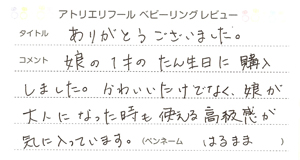 アトリエリフール ベビーリングレビュー
タイトル ありがとうございました。
コメント 娘の1才のたん生日に購入
しました。かわいいだけでなく、娘が
大人になった時も使える高級感が
気に入っています。(ペンネーム はるまま )